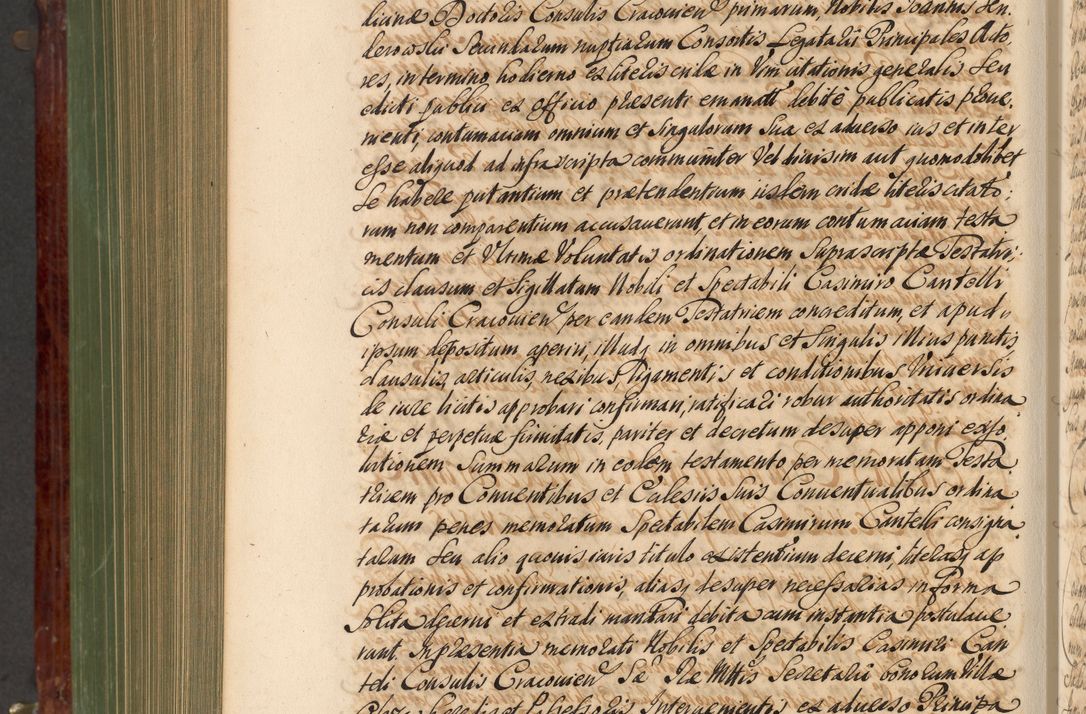 dicinæ Doctoris Consulis Cracovien primarum, Nobilis Joannis Sen
derowski Secundarum nuptiarum Consortis Legatarii Principales Acto,
res, in termino hodierno ex literis cridæ in Vim citationis generalis Seu
edicti publici ex officio præsenti emanatt debitè publicatis prove,
nienti, contumaciam omnium et Singulorum Sua ex adverso ius et inter
esse aliquod ad infrascripta communiter Vel divisim aut quomodolibet
Se habere putantium et prætendentium iisdem cridæ literis citato,
rum non comparentium accusaverunt, et in eorum contumaciam testa
mentum et Ultimæ Voluntatis ordinationem Suprascriptæ Testatri,
cis clausum et Sigillatum Nobili et Spectabili Casimiro Cantelli
Consuli Cracovien per eandem Testatricem concreditum, et apud
ipsum depositum aperiri, illudq in omnibus et Singulis illius punctis
clausulis, articulis, nexibus, ligamentis et conditionibus Universis
de iure licitis approbari confirmari, ratificari robur authoritatis ordina
riæ et perpetuæ firmitatis, pariter et decretum desuper apponi exso,
lutionem Summarum in eodem testamento per memoratam Testa
tricem pro Conventibus et Ecclesiis Suis Conventualibus ordina
tarum penes memoratum Spectabilem Casimirum Cantelli consigna
tarum Seu alio quovis iuris titulo existentium decerni, literasq ap
probationis et confirmationis, aliasq desuper necessarias in forma
Solita decerni et extradi mandari debita cum instantia postulave
runt. In præsentia memorati Nobilis et Spectabilis Casimiri Can
telli Consulis Cracovien Sæ Ræ Mttis Secretarii bonorum Villæ
et Interveniente ex adverso Principa